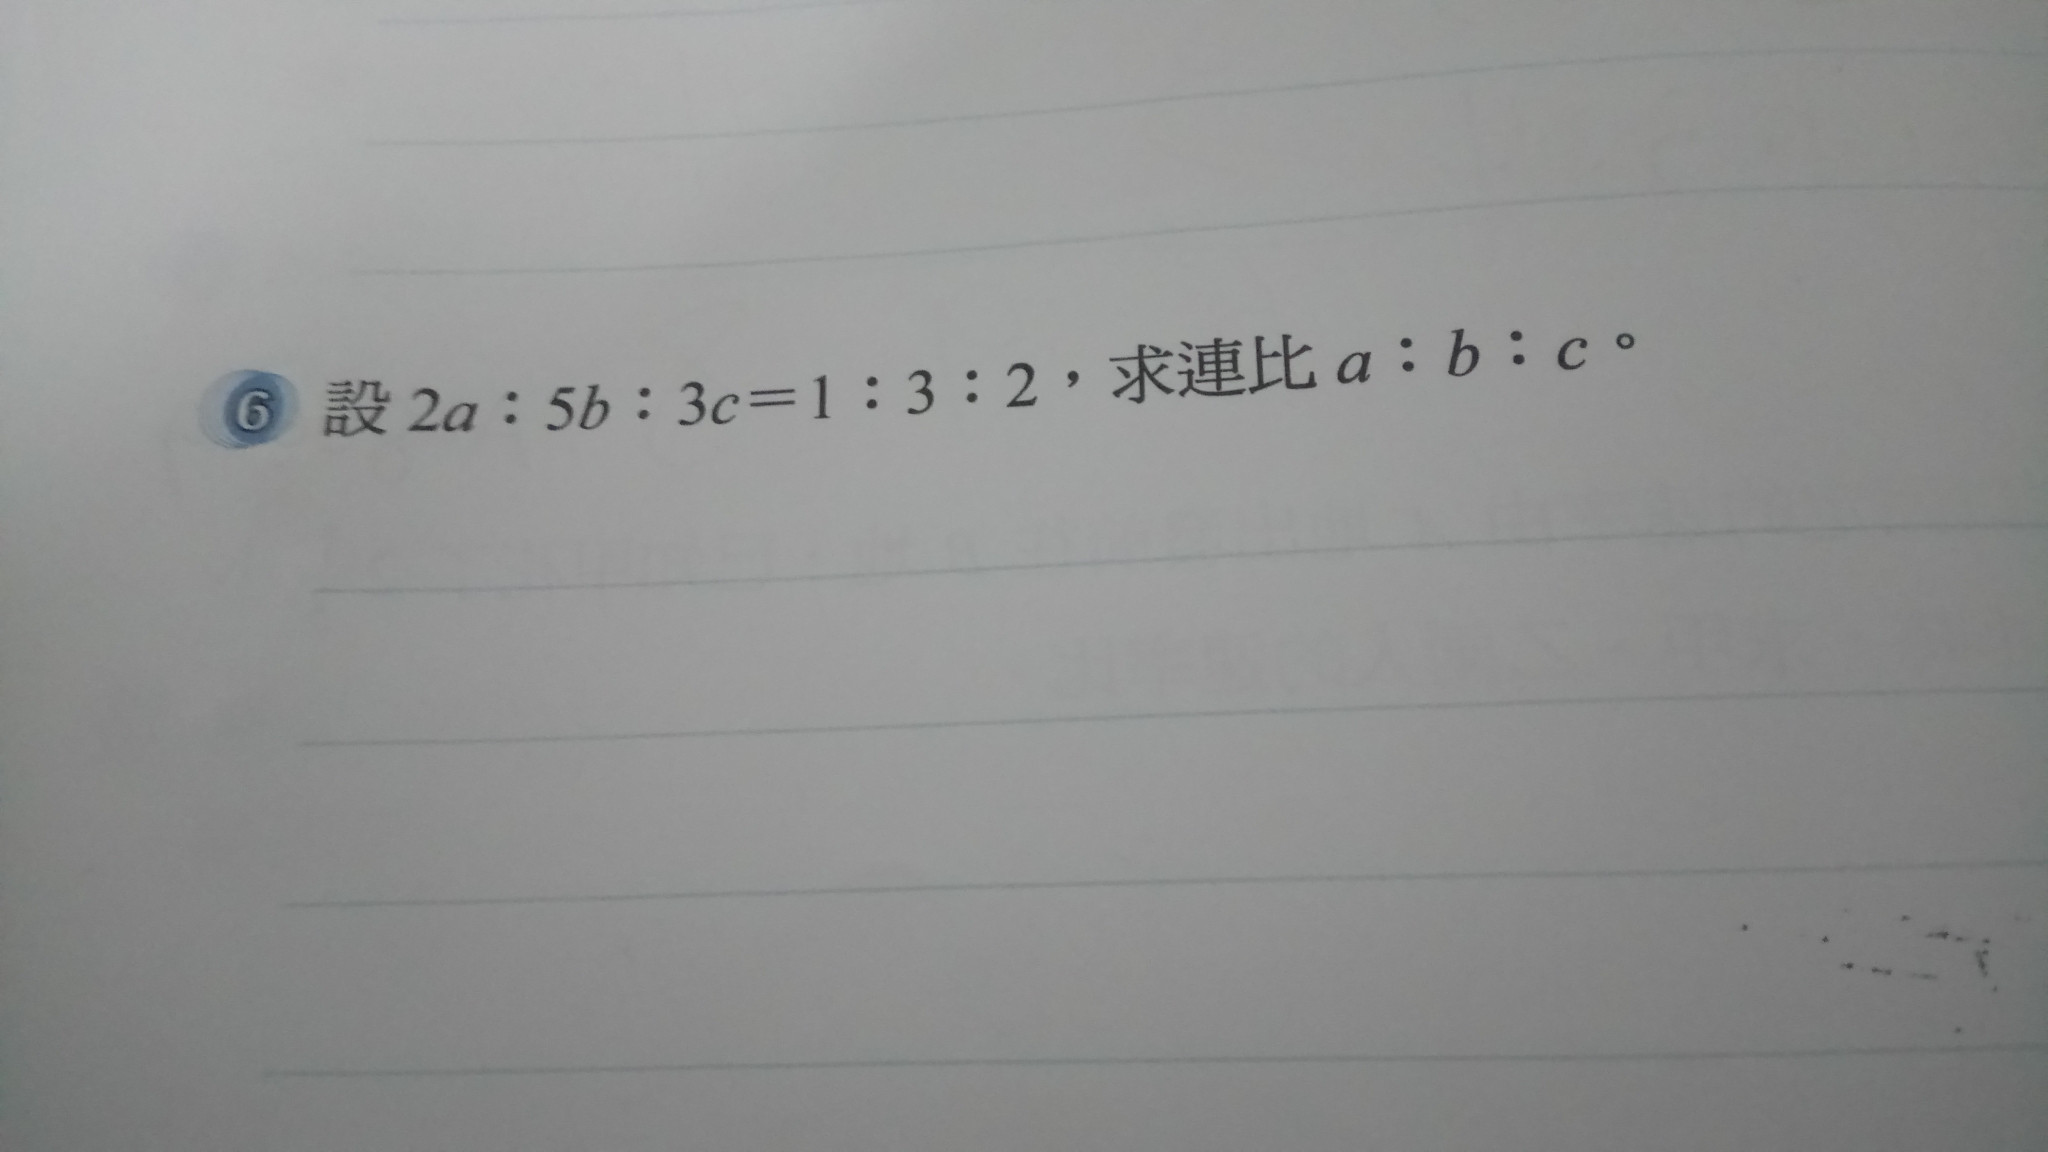 ⑥ 設 2a：5b：3c＝1：3：2，求連比 a：b：c。